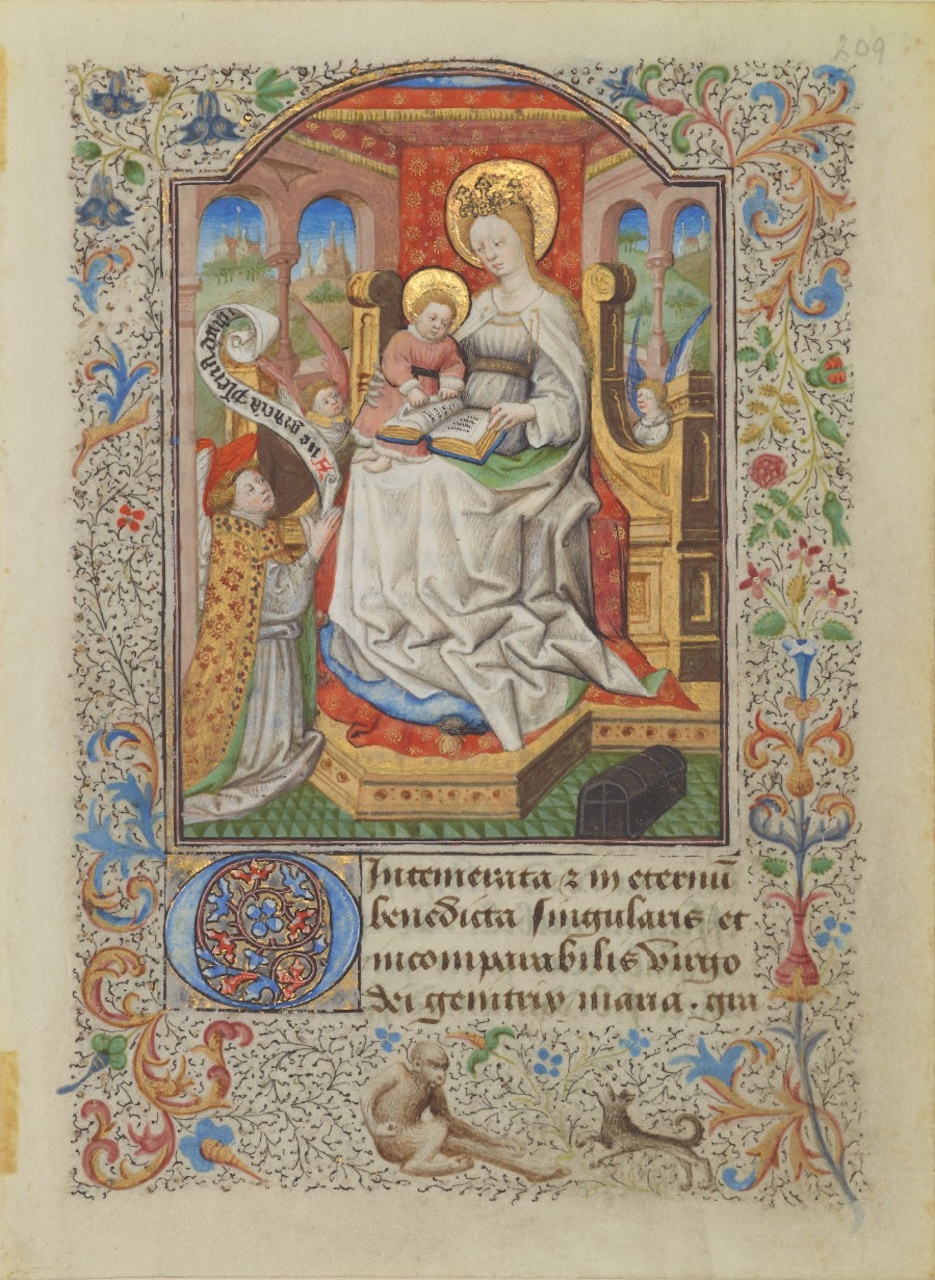 209
Aue gracia plena dominus
O Intemerata ⁊ in eternū
benedicta singularis et
incomparabilis virgo
dei genitrix maria. gra